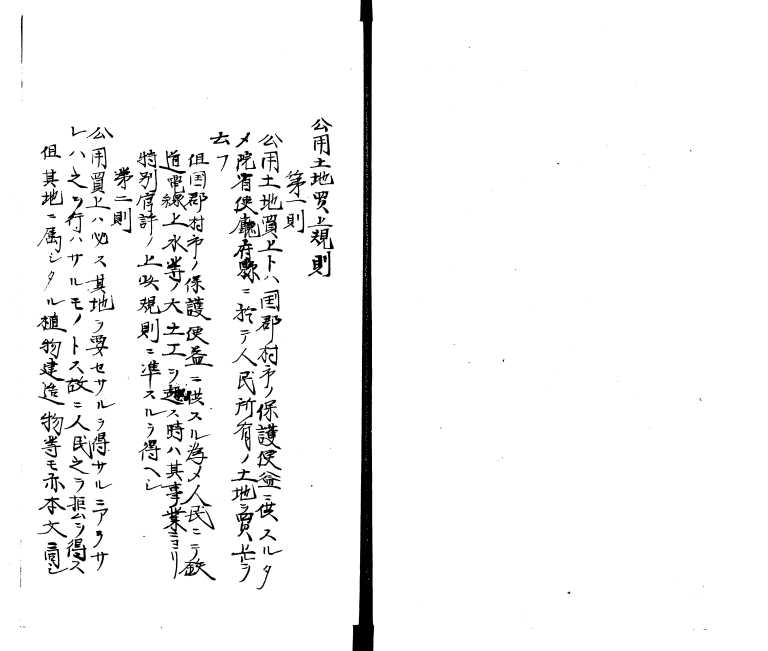 公用土地買上規則
第一則
公用土地買上トハ囯郡村市ノ保護便益ニ供スルタ
メ院省使廳府縣ニ於テ人民所有ノ土地ヲ買上ヲ
云フ
但囯郡村市ノ保護便益ニ供スル為メ人民ニテ鉄
道電線上水等ノ大土工ヲ起ス時ハ其事業ニヨリ
特別官許ノ上此規則ニ準スルヲ得ヘシ
第二則
公用買上ハ必ス其地ヲ要セサルヲ得サルニアラサ
レハ之ヲ行ハサルモノトス故ニ人民之ヲ拒ムヲ得ス
但其地ニ属シタル植物建造物等モ亦本文ニ同シ